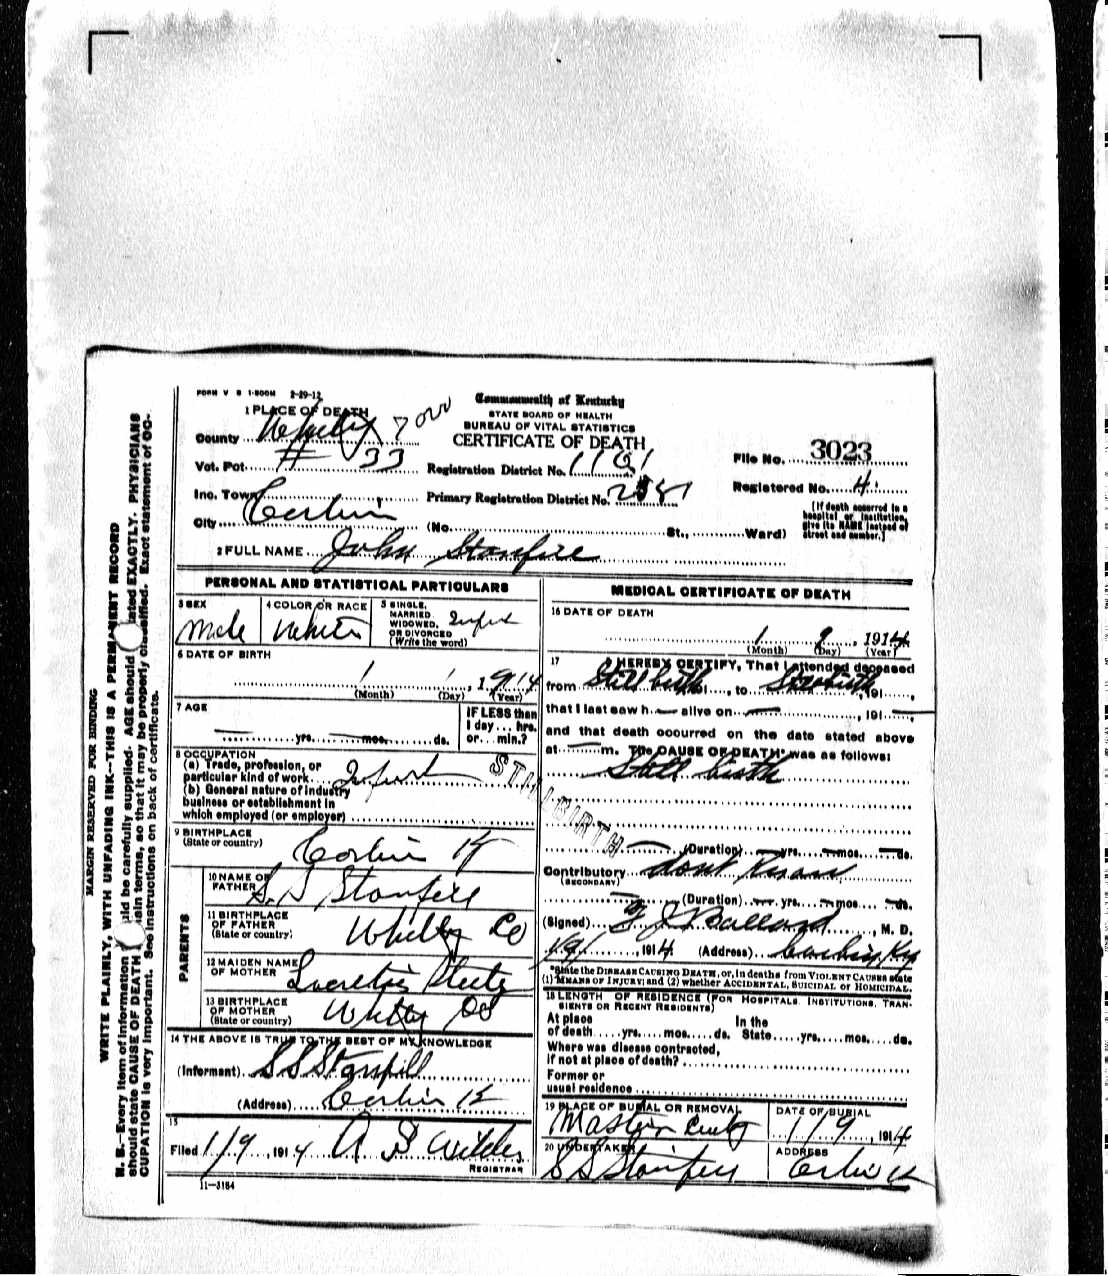 FORM V S 1-500M 2-29-12
Commonwealth of Kentucky
STATE BOARD OF HEALTH
BUREAU OF VITAL STATISTICS
CERTIFICATE OF DEATH
1 PLACE OF DEATH
County Whitley
Vot. Pct. # 33
Registration District No. 1101
File No. 3023
Inc. Town
Primary Registration District No.
Registered No. 4
City Corbin (No. St., Ward)
[If death occurred in a hospital or institution, give its NAME instead of street and number.]
2 FULL NAME John Stanfire
PERSONAL AND STATISTICAL PARTICULARS
3 SEX Male
4 COLOR OR RACE White
5 SINGLE, MARRIED WIDOWED, OR DIVORCED (Write the word) Infant
6 DATE OF BIRTH
1 1, 1914
(Month) (Day) (Year)
7 AGE
yrs. mos. ds.
IF LESS than 1 day ... hrs. or ... min.?
8 OCCUPATION
(a) Trade, profession, or particular kind of work Infant
(b) General nature of industry business or establishment in which employed (or employer)
STILLBIRTH
9 BIRTHPLACE
(State or country) Corbin Ky
PARENTS
10 NAME OF FATHER S. S. Stanfill
11 BIRTHPLACE OF FATHER (State or country) Whitley Co
12 MAIDEN NAME OF MOTHER
13 BIRTHPLACE OF MOTHER (State or country) Whitley Co
14 THE ABOVE IS TRUE TO THE BEST OF MY KNOWLEDGE
(Informant) S S Stanfill
(Address) Corbin K
15
Filed 1/9, 1914
REGISTRAR
11-3184
MEDICAL CERTIFICATE OF DEATH
16 DATE OF DEATH
1 9, 1914
(Month) (Day) (Year)
17 I HEREBY CERTIFY, That I attended deceased
from Still birth 191, to Still birth, 191,
that I last saw h alive on, 191,
and that death occurred on the date stated above
at m. The CAUSE OF DEATH* was as follows:
Still birth
(Duration) yrs. mos. ds.
Contributory dont Know
(SECONDARY)
(Duration) yrs. mos. ds.
(Signed) Ballard, M. D.
1/9/, 1914 (Address) Corbin Ky
*State the DISEASE CAUSING DEATH, or, in deaths from VIOLENT CAUSES state
(1) MEANS OF INJURY; and (2) whether ACCIDENTAL, SUICIDAL or HOMICIDAL.
18 LENGTH OF RESIDENCE (FOR HOSPITALS, INSTITUTIONS, TRAN-
SIENTS OR RECENT RESIDENTS)
At place of death yrs. mos. ds. In the State yrs. mos. ds.
Where was disease contracted,
if not at place of death?
Former or
usual residence
19 PLACE OF BURIAL OR REMOVAL
DATE OF BURIAL
1/9, 1914
20 UNDERTAKER
ADDRESS
MARGIN RESERVED FOR BINDING
WRITE PLAINLY, WITH UNFADING INK—THIS IS A PERMANENT RECORD
N. B.—Every item of information should be carefully supplied. AGE should stated EXACTLY. PHYSICIANS
should state CAUSE OF DEATH in plain terms, so that it may be properly classified. Exact statement of OC-
CUPATION is very important. See instructions on back of certificate.